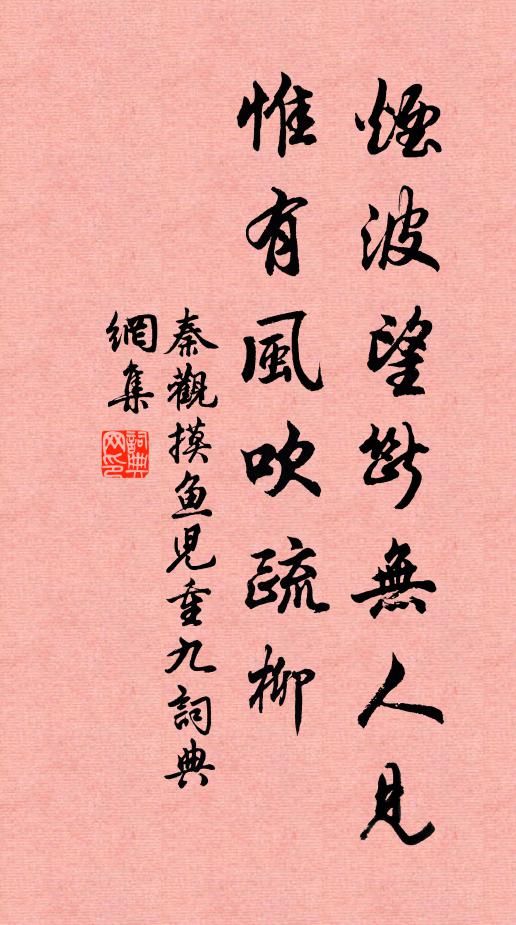 煙波望斷無人見
惟有風吹疏柳
秦觀摸魚兒重九詞典
網集
詞典
网印